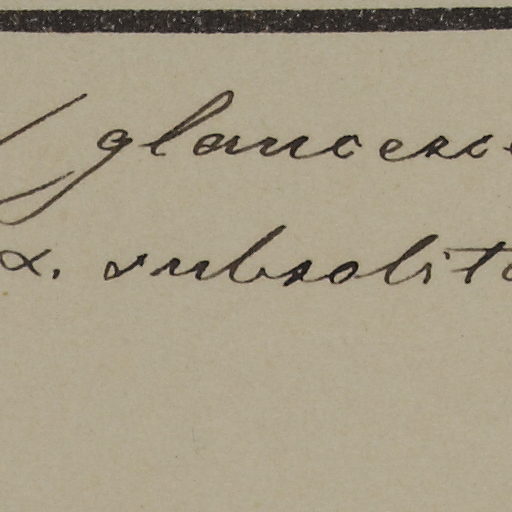 glaucesce
α. subsolita